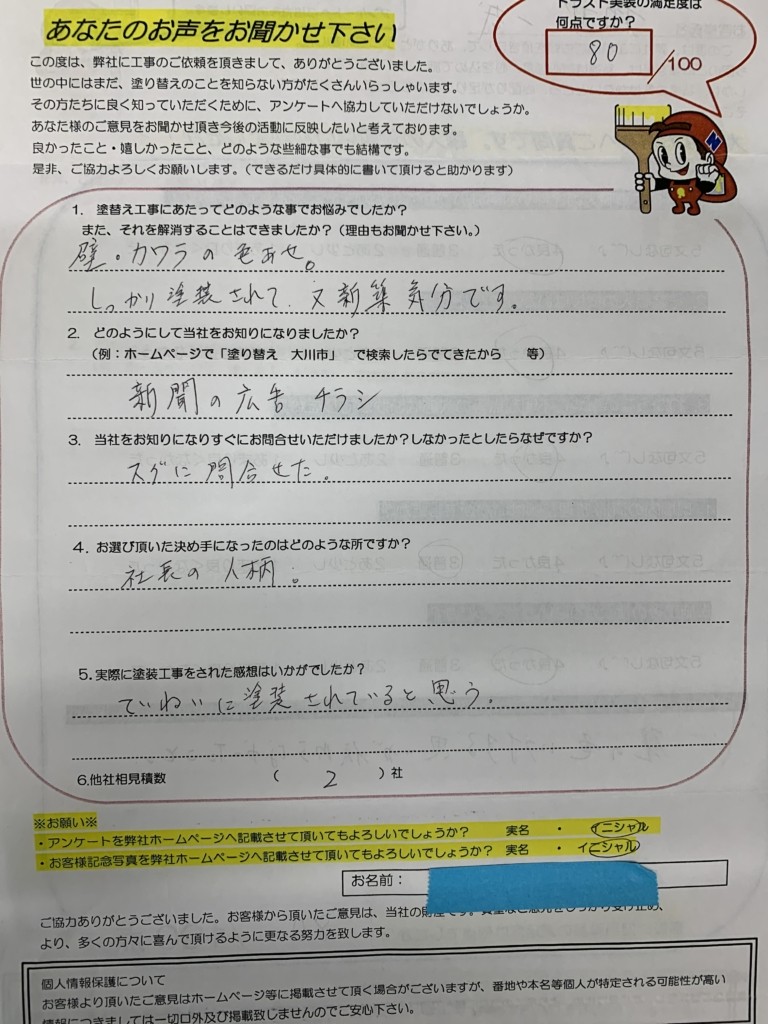 トラスト美装の満足度は
何点ですか？
80／100
あなたのお声をお聞かせ下さい
この度は、弊社に工事のご依頼を頂きまして、ありがとうございました。
世の中にはまだ、塗り替えのことを知らない方がたくさんいらっしゃいます。
その方たちに良く知っていただくために、アンケートへ協力していただけないでしょうか。
あなた様のご意見をお聞かせ頂き今後の活動に反映したいと考えております。
良かったこと・嬉しかったこと、どのような些細な事でも結構です。
是非、ご協力よろしくお願いします。（できるだけ具体的に書いて頂けると助かります）
N
1. 塗替え工事にあたってどのような事でお悩みでしたか？
また、それを解消することはできましたか？（理由もお聞かせ下さい。）
壁・カワラの色あせ。
しっかり塗装されて、又新築気分です。
2. どのようにして当社をお知りになりましたか？
（例：ホームページで「塗り替え 大川市」 で検索したらでてきたから 等）
新聞の広告チラシ
3. 当社をお知りになりすぐにお問合せいただけましたか？しなかったとしたらなぜですか？
スグに問合せた。
4. お選び頂いた決め手になったのはどのような所ですか？
社長の人柄。
5.実際に塗装工事をされた感想はいかがでしたか？
ていねいに塗装されていると思う。
6.他社相見積数 （ 2 ）社
※お願い※
・アンケートを弊社ホームページへ記載させて頂いてもよろしいでしょうか？ 実名 ・ イニシャル
・お客様記念写真を弊社ホームページへ記載させて頂いてもよろしいでしょうか？ 実名 ・ イニシャル
お名前：
ご協力ありがとうございました。お客様から頂いたご意見は、当社の財産です。貴重なご意見をしっかり受け止め、
より、多くの方々に喜んで頂けるように更なる努力を致します。
個人情報保護について
お客様より頂いたご意見はホームページ等に掲載させて頂く場合がございますが、番地や本名等個人が特定される可能性が高い
情報につきましては一切口外及び掲載致しませんのでご安心下さい。